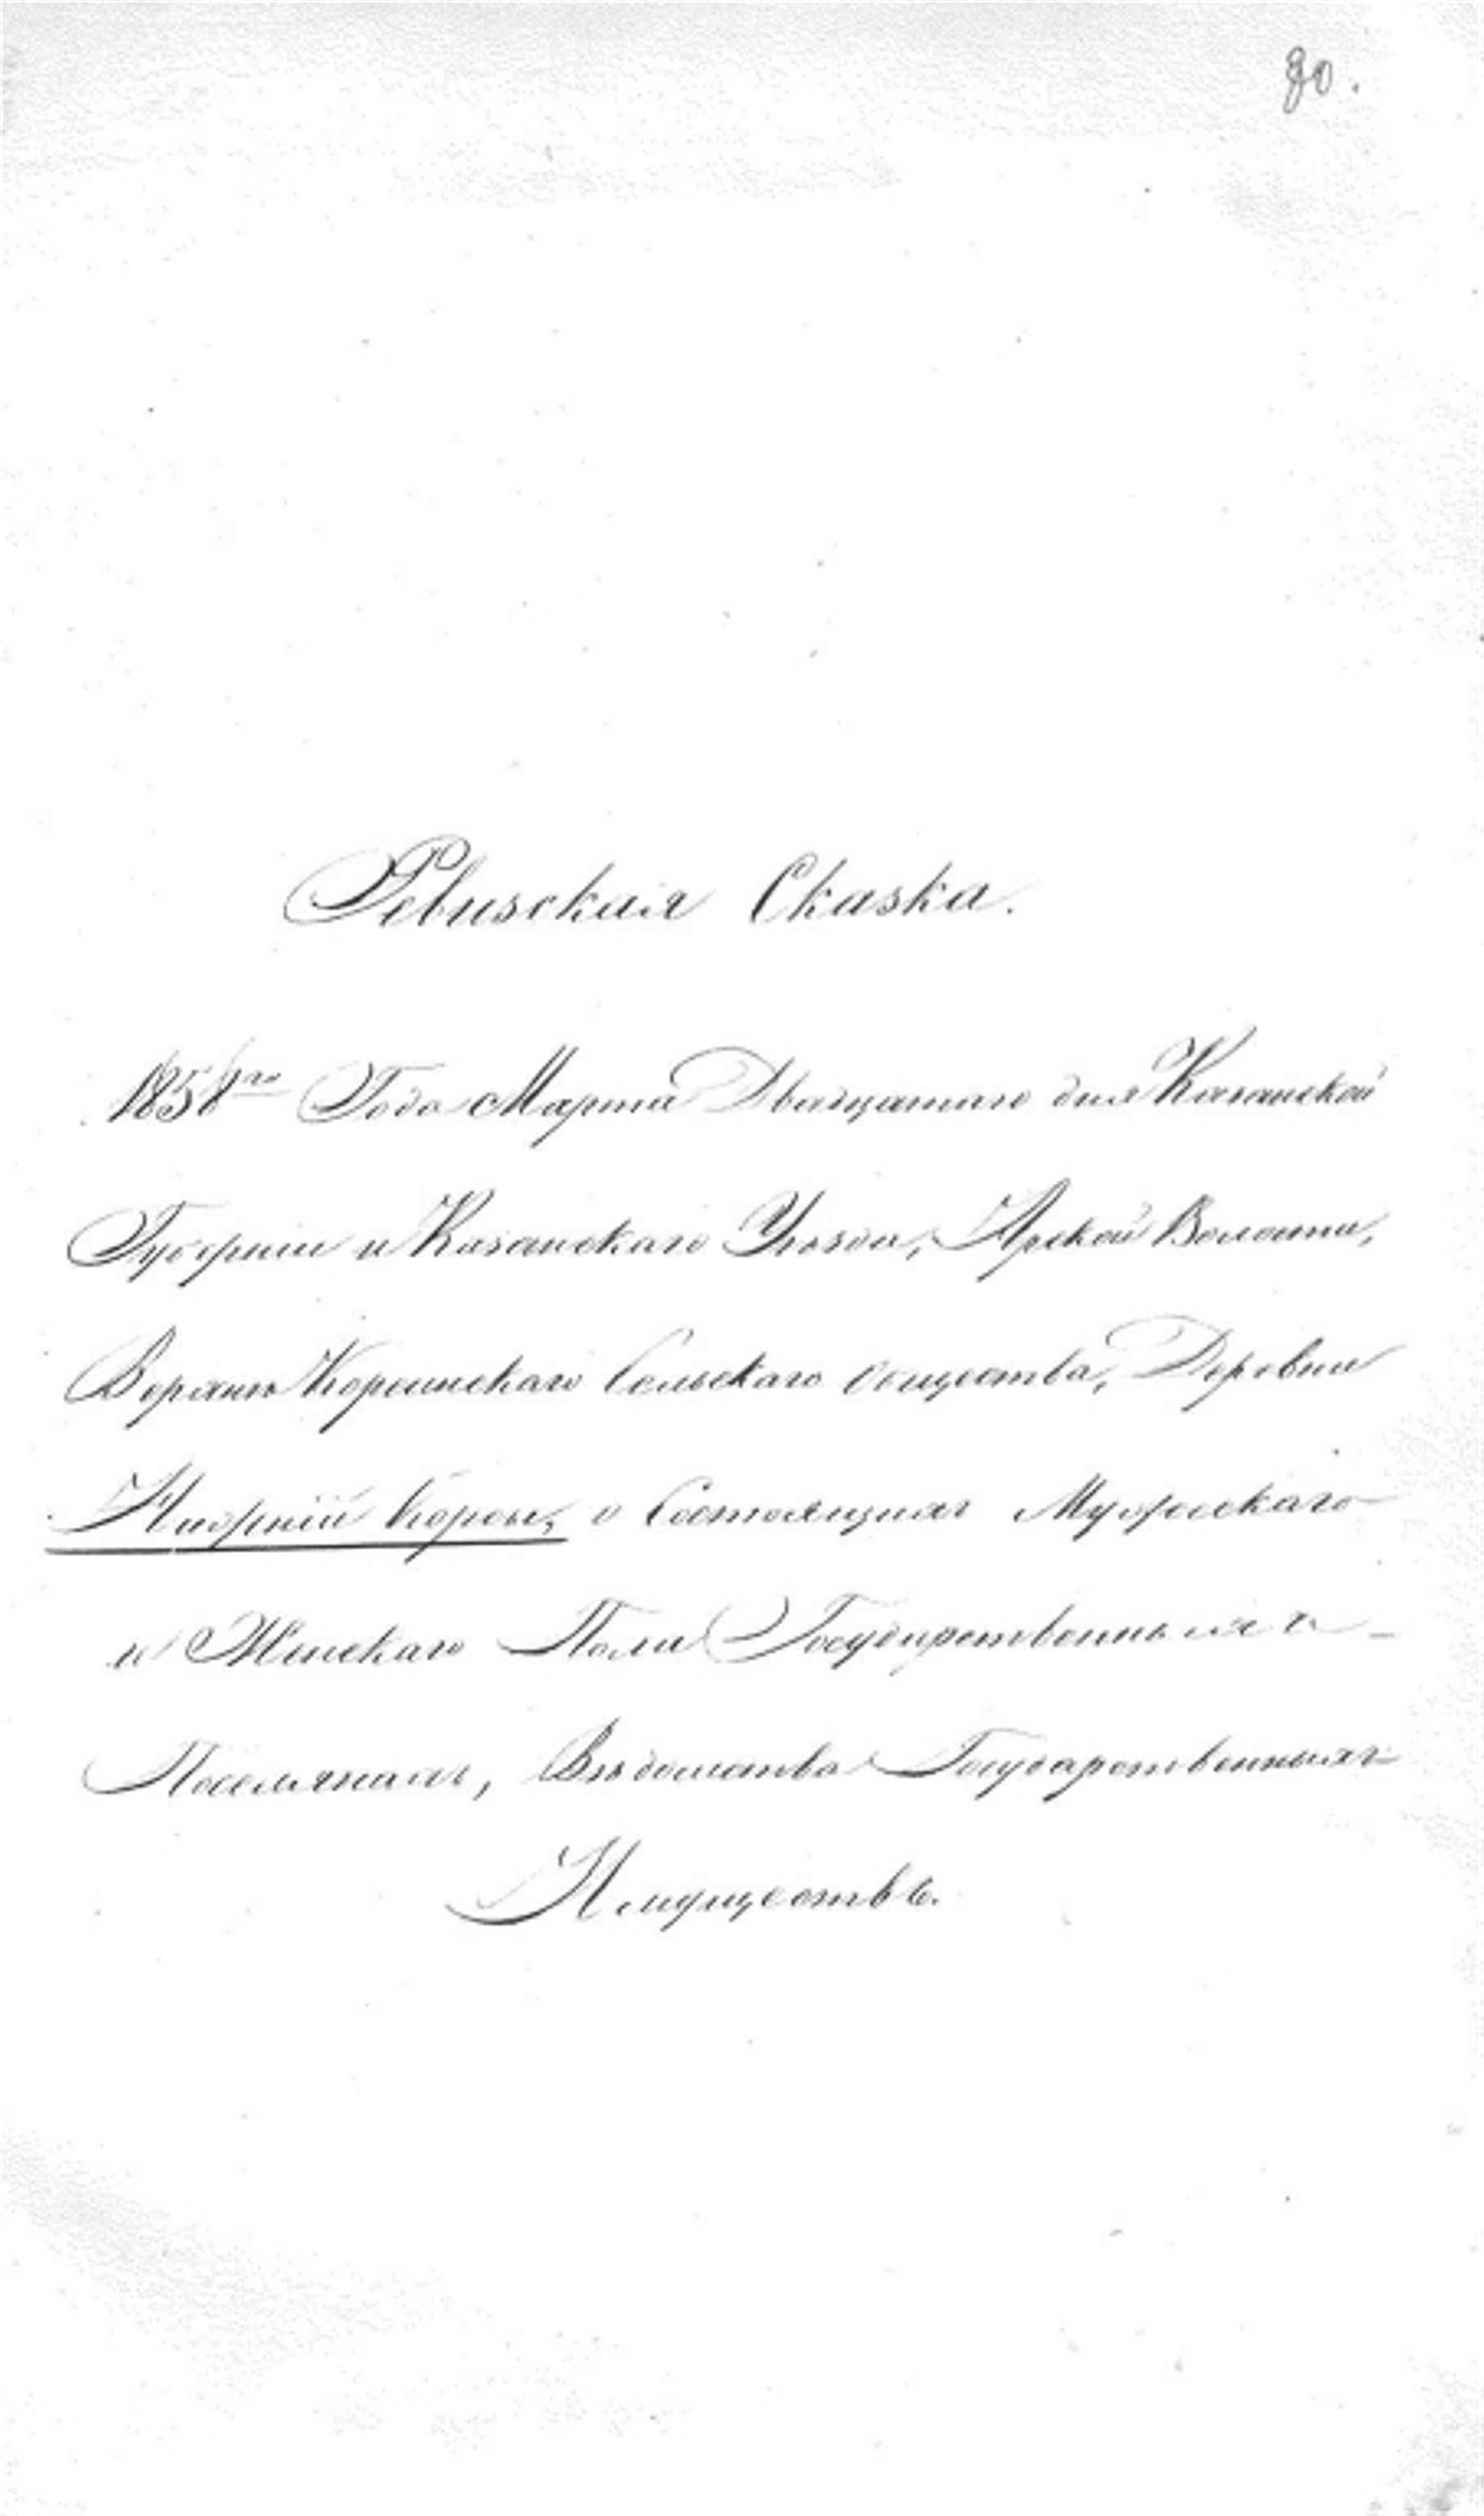 80.
Ревизская Сказка.
1858го Года Марта Двацатаго дня Казанской
Губернии и Казанскаго Уѣзда, Арской Волости,
Верхне Корсинскаго Сельскаго общества, Деревни
Нижней Корсы, о Состоящихъ Мужескаго
и Женскаго Пола Государственныхъ
Поселянахъ, Вѣдомства Государственныхъ
Имуществъ.